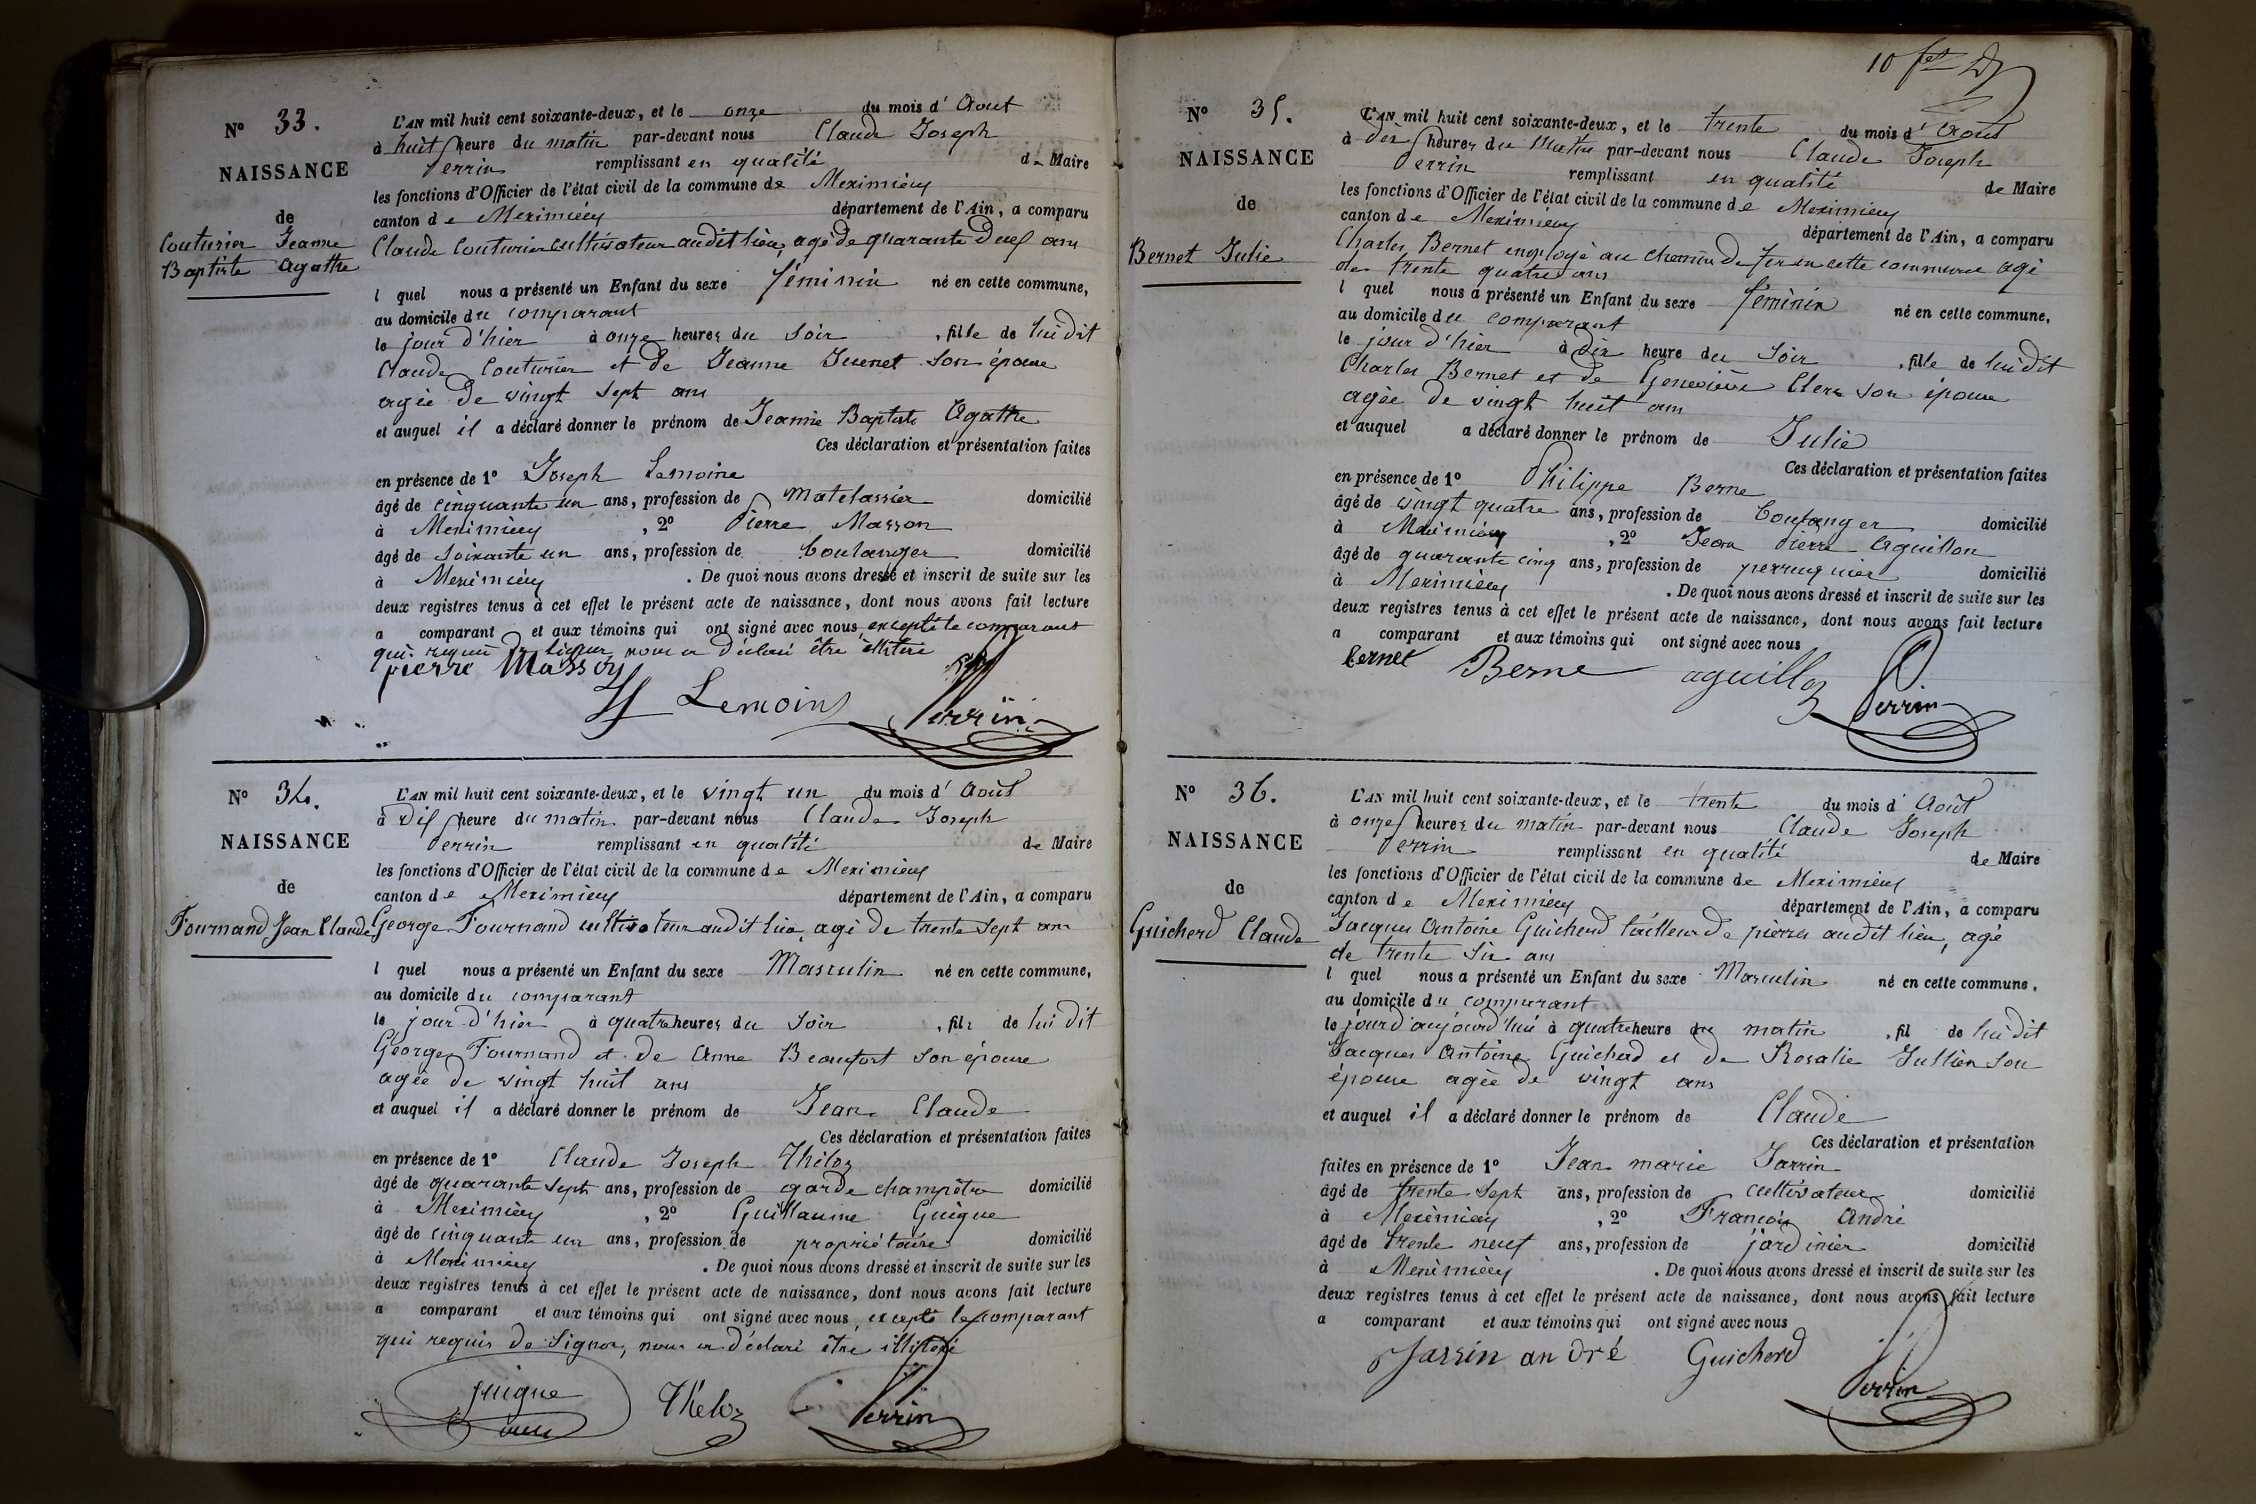 10
N° 33.
NAISSANCE
de
Couturier Jeanne
Baptiste Agathe
L'AN mil huit cent soixante-deux, et le onze du mois d'Aout
à huit heure du matin par-devant nous Claude Joseph
Perrin remplissant en qualité de Maire
les fonctions d'Officier de l'état civil de la commune de Meximieux
canton de Meximieux département de l'Ain, a comparu
Claude Couturier cultivateur audit lieu, agé de quarante deux ans
l quel nous a présenté un Enfant du sexe féminin né en cette commune,
au domicile du comparant
le jour d'hier à onze heures du soir , fille de lui dit
Claude Couturier et de Jeanne Juenet son épouse
agée de vingt sept ans
et auquel il a déclaré donner le prénom de Jeanne Baptiste Agathe
Ces déclaration et présentation faites
en présence de 1° Joseph Lemoine
âgé de cinquante un ans, profession de matelassier domicilié
à Meximieux , 2° Pierre Masson
âgé de soixante un ans, profession de boulanger domicilié
à Meximieux . De quoi nous avons dressé et inscrit de suite sur les
deux registres tenus à cet effet le présent acte de naissance, dont nous avons fait lecture
a comparant et aux témoins qui ont signé avec nous, excepté le comparant
qui requis de signer nous a déclaré être illitéré
pierre Masson
Lemoine Perrin
N° 34.
NAISSANCE
de
Fournand Jean Claude
L'AN mil huit cent soixante-deux, et le vingt un du mois d'Août
à dix heure du matin par-devant nous Claude Joseph
Perrin remplissant en qualité de Maire
les fonctions d'Officier de l'état civil de la commune de Meximieux
canton de Meximieux département de l'Ain, a comparu
George Fournand cultivateur audit lieu, agé de trente sept ans
l quel nous a présenté un Enfant du sexe Masculin né en cette commune,
au domicile du comparant
le jour d'hier à quatre heures du soir , fils de lui dit
George Fournand et de Anne Beaufort son épouse
agée de vingt huit ans
et auquel il a déclaré donner le prénom de Jean Claude
Ces déclaration et présentation faites
en présence de 1° Claude Joseph Théloz
âgé de quarante sept ans, profession de garde champêtre domicilié
à Meximieux , 2° Guillaume Guigue
âgé de cinquante un ans, profession de propriétaire domicilié
à Meximieux . De quoi nous avons dressé et inscrit de suite sur les
deux registres tenus à cet effet le présent acte de naissance, dont nous avons fait lecture
a comparant et aux témoins qui ont signé avec nous, excepté le comparant
qui requis de signer, nous a déclaré être illitéré
guigue Théloz Perrin
N° 35.
NAISSANCE
de
Bernet Julie
L'AN mil huit cent soixante-deux, et le trente du mois d'Août
à dix heures du matin par-devant nous Claude Joseph
Perrin remplissant en qualité de Maire
les fonctions d'Officier de l'état civil de la commune de Meximieux
canton de Meximieux département de l'Ain, a comparu
Charles Bernet employé au chemin de fer en cette commune agé
de trente quatre ans
l quel nous a présenté un Enfant du sexe féminin né en cette commune,
au domicile du comparant
le jour d'hier à dix heure du soir , fille de lui dit
Charles Bernet et de Geneviève Clerc son épouse
agée de vingt huit ans
et auquel a déclaré donner le prénom de Julie
Ces déclaration et présentation faites
en présence de 1° Philippe Berne
âgé de vingt quatre ans, profession de boulanger domicilié
à Meximieux , 2° Jean Pierre Aguillon
âgé de quarante cinq ans, profession de perruquier domicilié
à Meximieux . De quoi nous avons dressé et inscrit de suite sur les
deux registres tenus à cet effet le présent acte de naissance, dont nous avons fait lecture
a comparant et aux témoins qui ont signé avec nous
bernet Berne aguillon Perrin
N° 36.
NAISSANCE
de
Guicherd Claude
L'AN mil huit cent soixante-deux, et le trente du mois d'Août
à onze heures du matin par-devant nous Claude Joseph
Perrin remplissant en qualité de Maire
les fonctions d'Officier de l'état civil de la commune de Meximieux
canton de Meximieux département de l'Ain, a comparu
Jacques Antoine Guicherd tailleur de pierres audit lieu, agé
de trente six ans
l quel nous a présenté un Enfant du sexe Masculin né en cette commune,
au domicile du comparant
le jourd'aujourd'hui à quatre heure du matin , fil de lui dit
Jacques Antoine Guicherd et de Rosalie Jullien son
épouse agée de vingt ans
et auquel il a déclaré donner le prénom de Claude
Ces déclaration et présentation
faites en présence de 1° Jean marie Jarrin
âgé de trente sept ans, profession de cultivateur domicilié
à Meximieux , 2° François André
âgé de trente neuf ans, profession de jardinier domicilié
à Meximieux . De quoi nous avons dressé et inscrit de suite sur les
deux registres tenus à cet effet le présent acte de naissance, dont nous avons fait lecture
a comparant et aux témoins qui ont signé avec nous
Jarrin andré Guicherd
Perrin